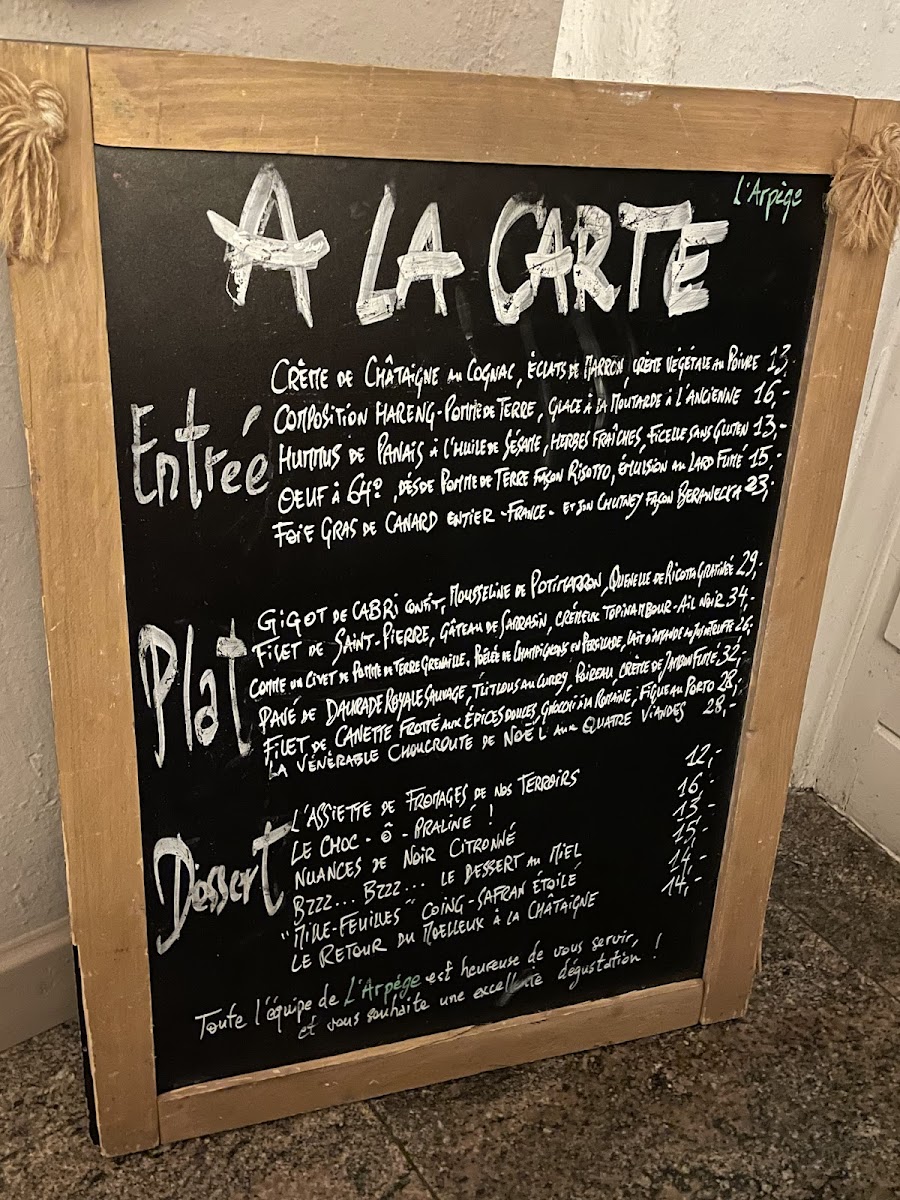 L'Arpège
A LA CARTE
Entrée
CRÈME DE CHÂTAIGNE AU COGNAC, ÉCLATS DE MARRON, CRÈME VÉGÉTALE AU POIVRE 13,-
COMPOSITION HARENG-POMME DE TERRE, GLACE À LA MOUTARDE À L'ANCIENNE 16,-
HUMMUS DE PANAIS À L'HUILE DE SÉSAME, HERBES FRAÎCHES, FICELLE SANS GLUTEN 13,-
OEUF À 64°, DÉS DE POMME DE TERRE FAÇON RISOTTO, ÉMULSION AU LARD FUMÉ 15,-
FOIE GRAS DE CANARD ENTIER -FRANCE- ET SON CHUTNEY FAÇON BERAWECKA 23,-
Plat
GIGOT DE CABRI CONFIT, MOUSSELINE DE POTIMARRON, QUENELLE DE RICOTTA GRATINÉE 29,-
FILET DE SAINT-PIERRE, GÂTEAU DE SARRASIN, CRÉMEUX TOPINAMBOUR-AIL NOIR 34,-
COMME UN CIVET DE POMME DE TERRE GRENAILLE, POÊLÉE DE CHAMPIGNONS EN PERSILLADE, LAIT D'AMANDE AU JUS DE TRUFFE 26,-
PAVÉ DE DAURADE ROYALE SAUVAGE, AU CURRY, POIREAU, CRÈME DE JAMBON FUMÉ 32,-
FILET DE CANETTE FROTTÉ AUX ÉPICES DOUCES, GNOCCHI À LA ROMAINE, FIGUE AU PORTO 28,-
LA VÉNÉRABLE CHOUCROUTE DE NOËL AUX QUATRE VIANDES 28,-
Dessert
L'ASSIETTE DE FROMAGES DE NOS TERROIRS 12,-
LE CHOC-Ô-PRALINÉ ! 16,-
NUANCES DE NOIR CITRONNÉ 13,-
BZZZ... BZZZ... LE DESSERT AU MIEL 15,-
"MILLE-FEUILLES" COING-SAFRAN ÉTOILÉ 14,-
LE RETOUR DU MOELLEUX À LA CHÂTAIGNE 14,-
Toute l'équipe de L'Arpège est heureuse de vous servir,
et vous souhaite une excellente dégustation !